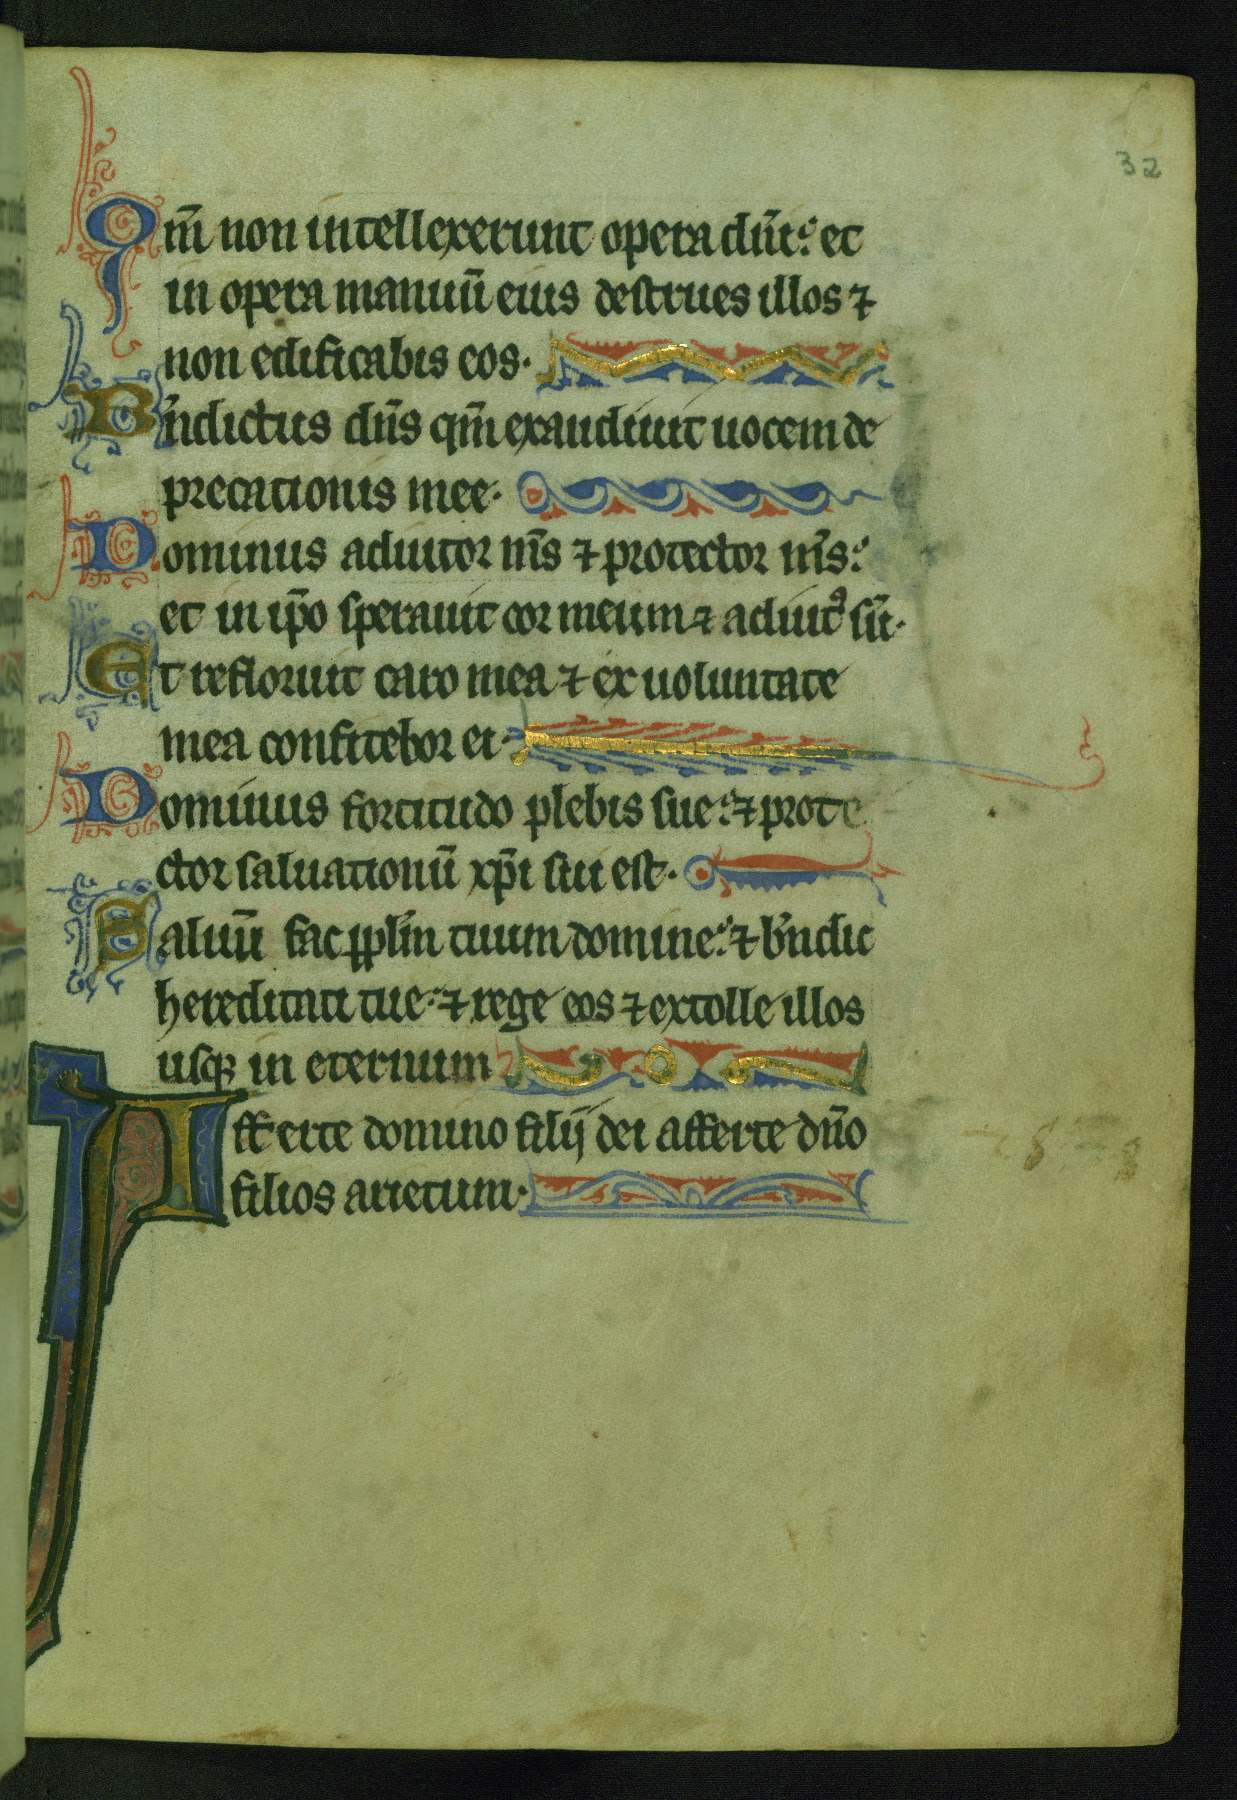 32
Qm̄ non intellexerunt opera dn̄i: et
in opera manuū eius destrues illos ⁊
non edificabis eos.
Bn̄dictus dn̄s qm̄ exaudiuit uocem de
precationis mee.
Dominus adiutor ms̄ ⁊ protector ms̄:
et in ip̄o sperauit cor meum ⁊ adiutꝰ sū.
Et refloruit caro mea ⁊ ex uoluntate
mea confitebor ei.
Dominus fortitudo plebis sue: ⁊ prote
ctor saluationū xp̄i sui est.
Saluū fac pplm̄ tuum domine: ⁊ bn̄dic
hereditati tue: ⁊ rege eos ⁊ extolle illos
usqꝫ in eternum
Afferte domino filij dei afferte dn̄o
filios arietum.